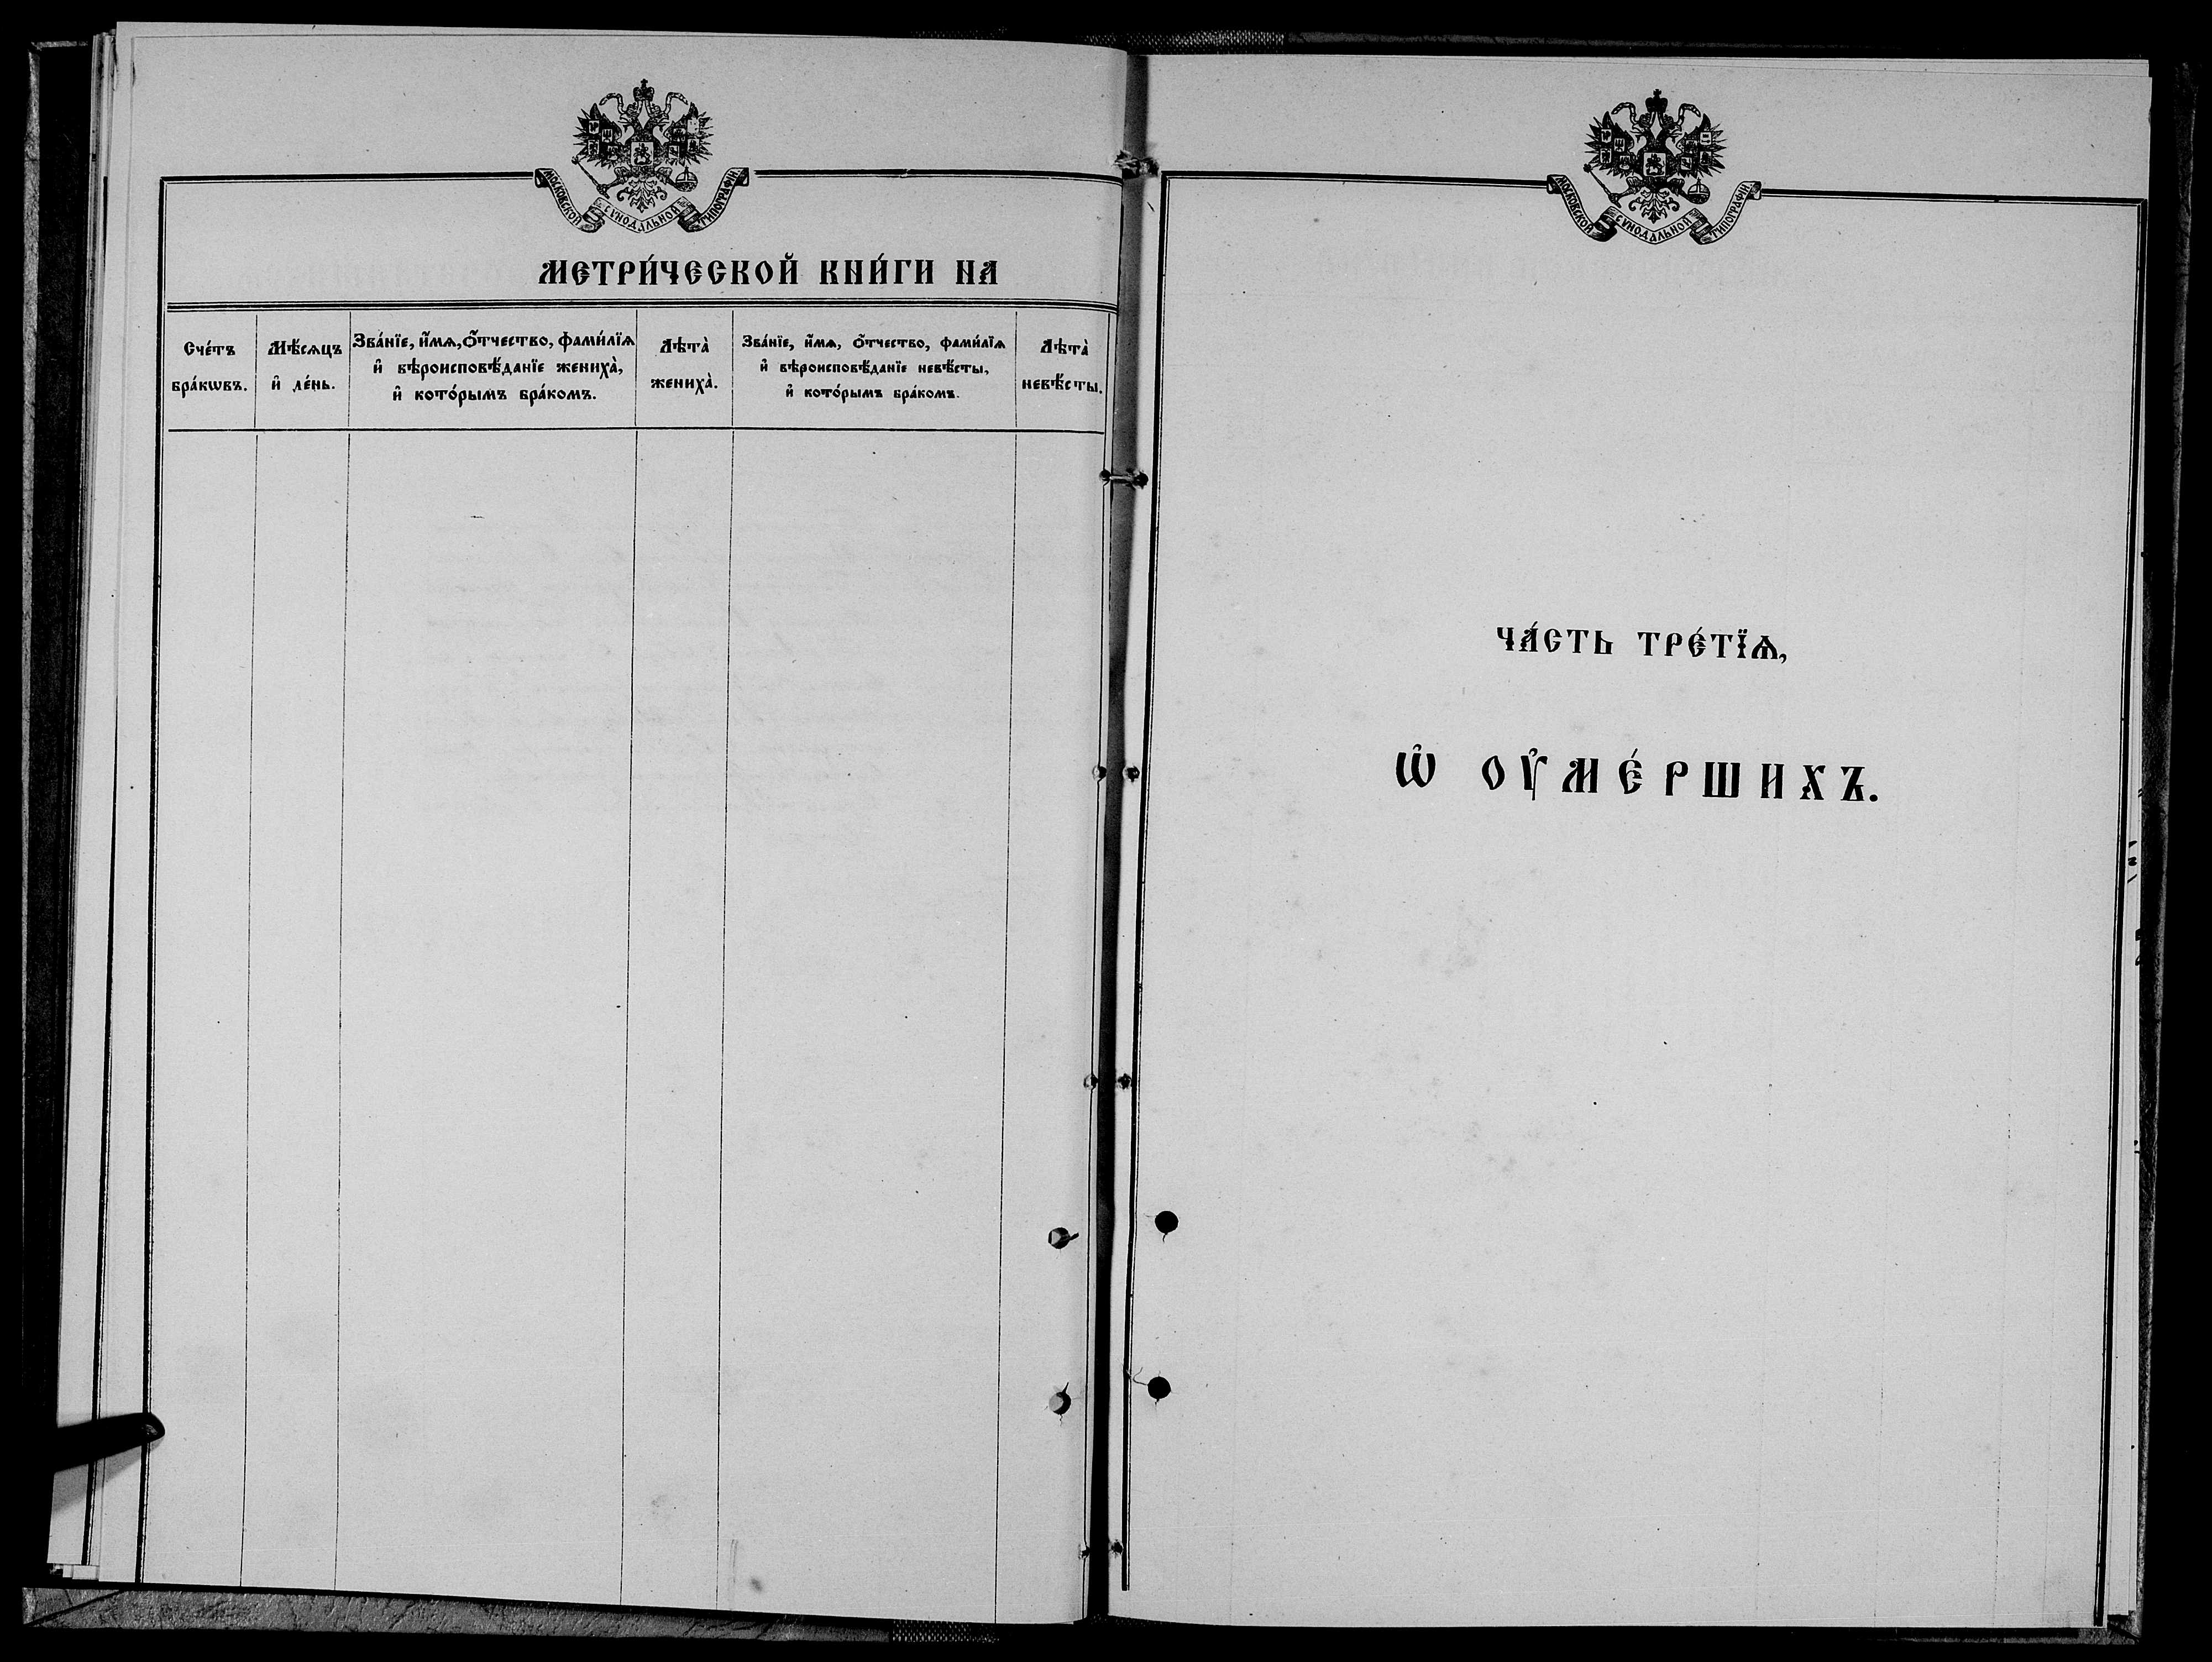 МОСКОВСКОЙ СѴНОДАЛЬНОЙ ТИПОГРАФІИ
МЕТРИ́ЧЕСКОЙ КНИ́ГИ НА
Сче́тъ
бра́кѡвъ.
Мѣ́сѧцъ
и҆ де́нь.
Зва́нїе, и҆́мѧ, ѻ҆́тчество, фами́лїѧ
и҆ вѣроисповѣ́данїе жениха̀,
и҆ кото́рымъ бра́комъ.
Лѣта̀
жениха̀.
Зва́нїе, и҆́мѧ, ѻ҆́тчество, фами́лїѧ
и҆ вѣроисповѣ́данїе невѣ́сты,
и҆ кото́рымъ бра́комъ.
Лѣта̀
невѣ́сты.
МОСКОВСКОЙ СѴНОДАЛЬНОЙ ТИПОГРАФІИ
ЧА́СТЬ ТРЕ́ТЇѦ,
Ѡ҆ ОУ҆МЕ́РШИХЪ.